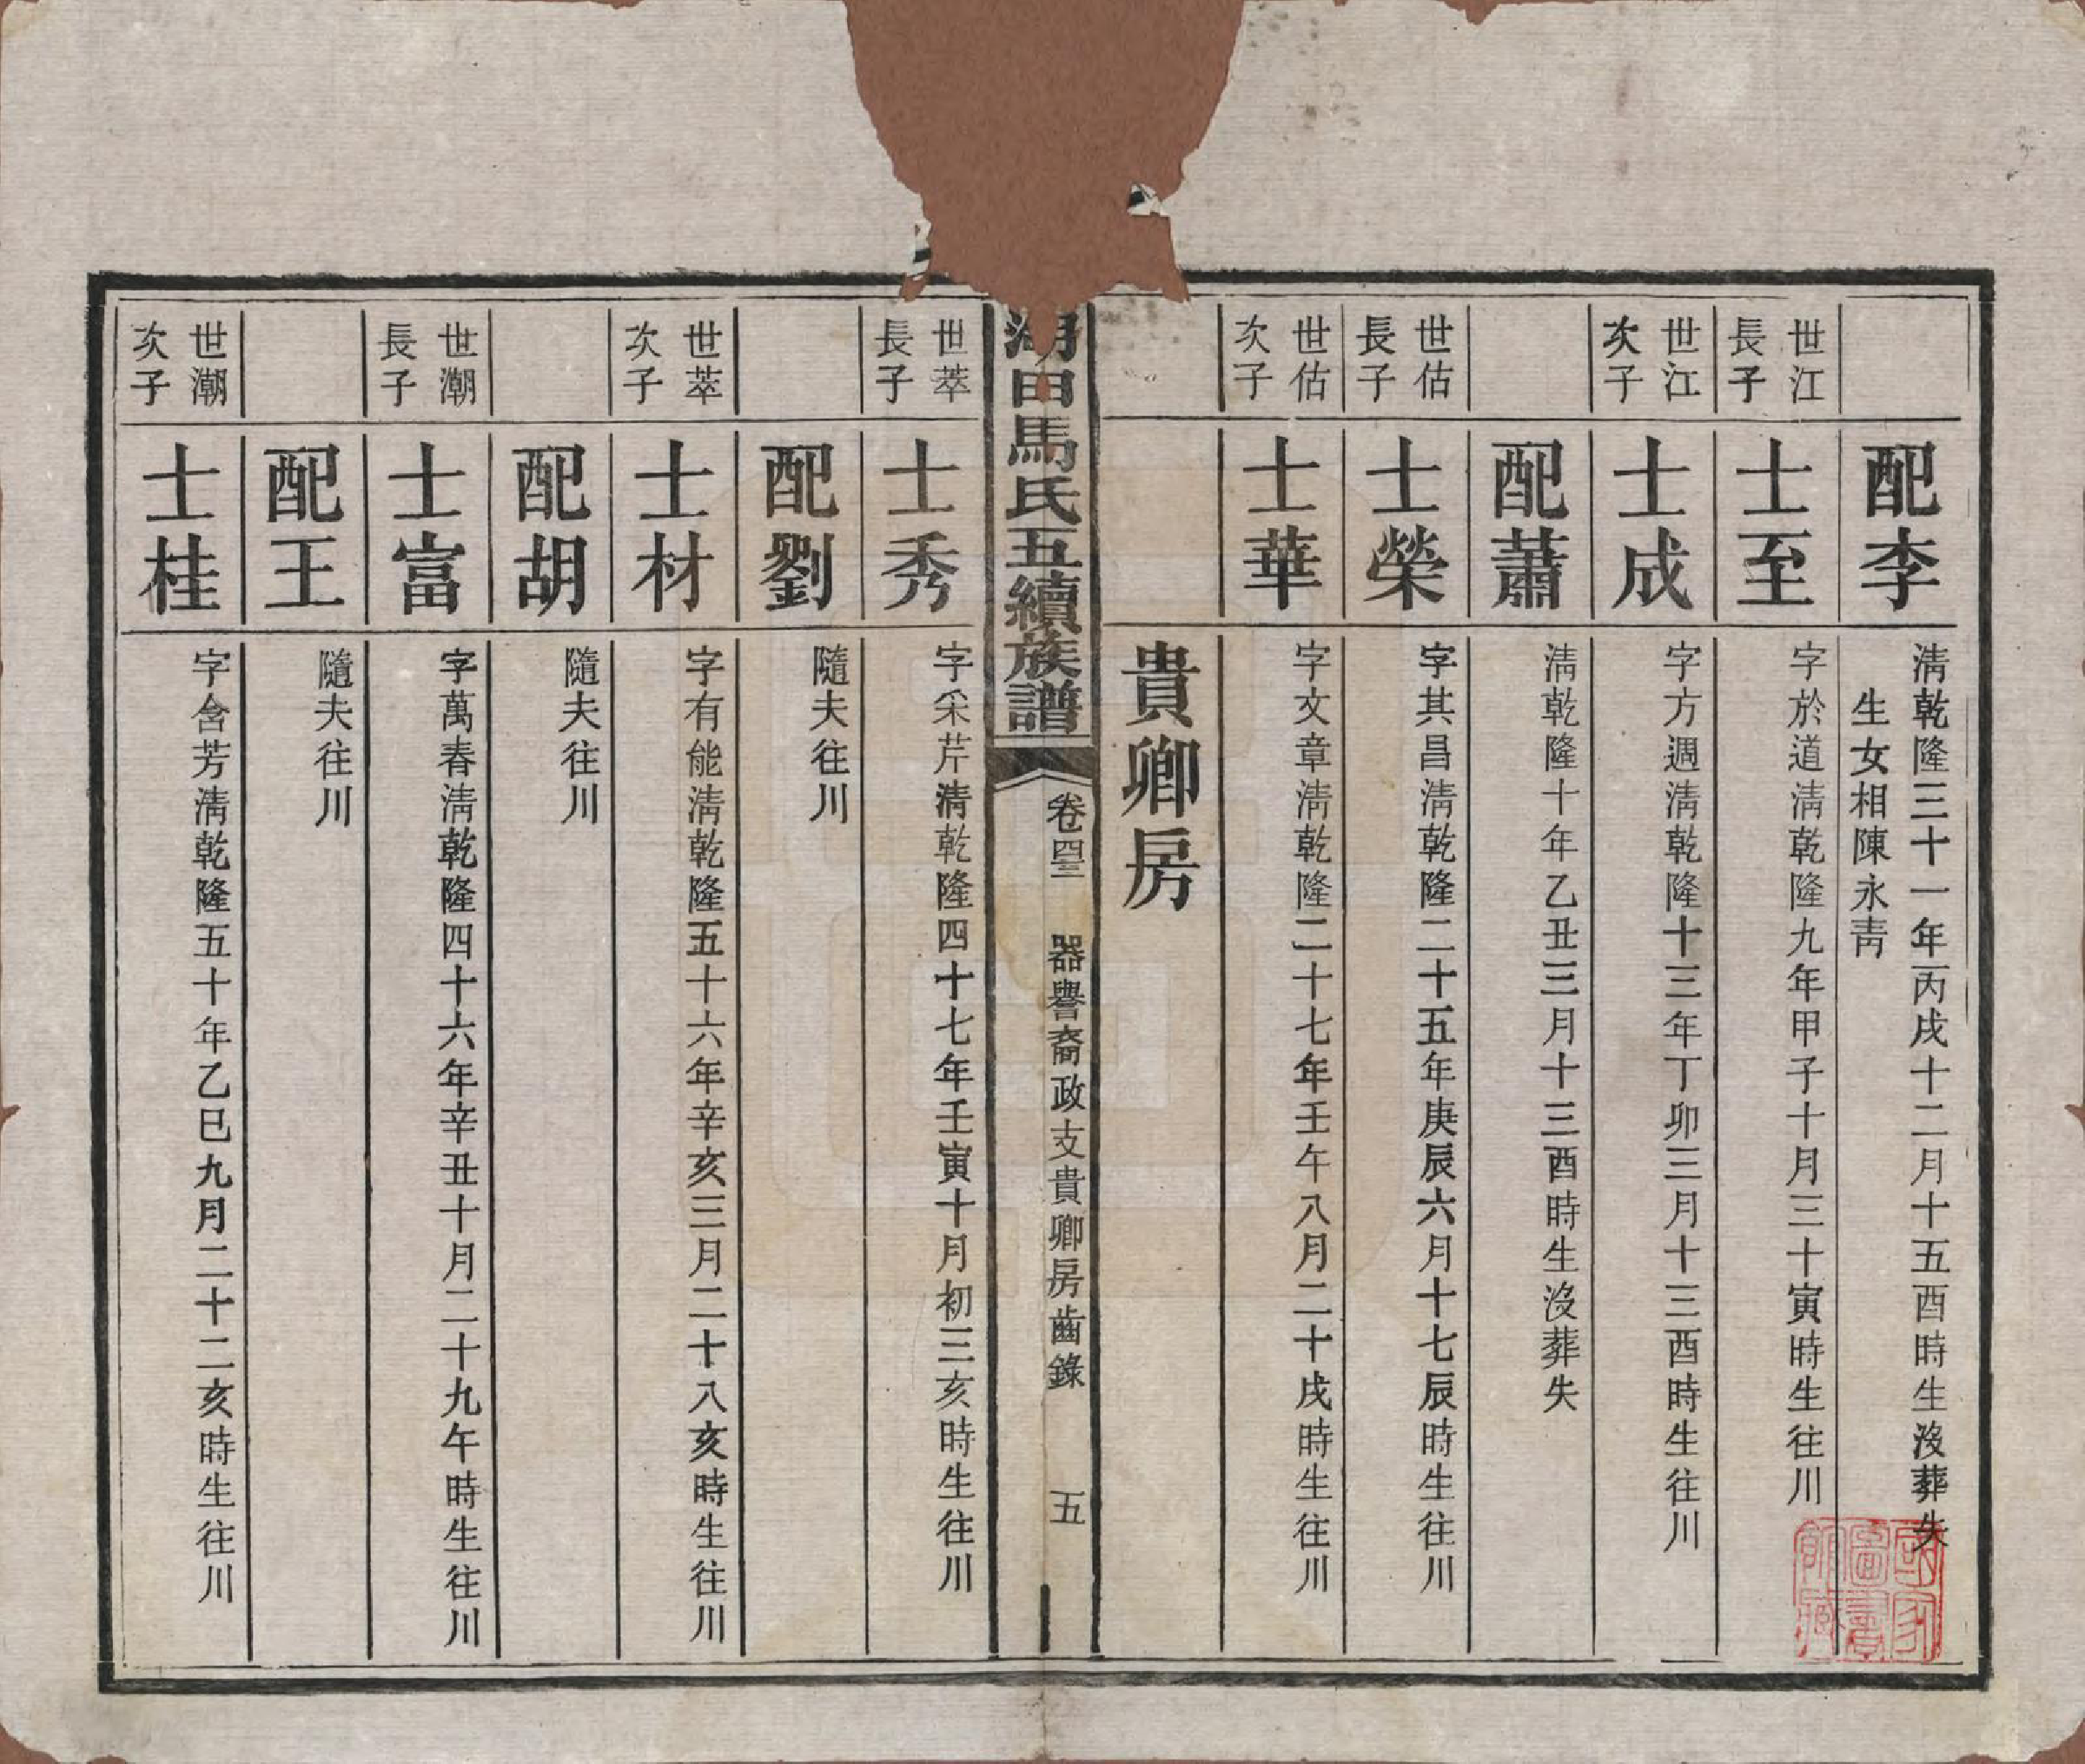 配李
淸乾隆三十一年丙戌十二月十五酉時生沒葬失
生女相陳永靑
世江
長子
士至
字於道淸乾隆九年甲子十月三十寅時生往川
世江
次子
士成
字方週淸乾隆十三年丁卯三月十三酉時生往川
配蕭
淸乾隆十年乙丑三月十三酉時生沒葬失
世估
長子
士榮
字其昌淸乾隆二十五年庚辰六月十七辰時生往川
世估
次子
士華
字文章淸乾隆二十七年壬午八月二十戌時生往川
貴卿房
湖田馬氏五續族譜
卷四三
器譽裔政支貴卿房齒錄
五
世萃
長子
士秀
字采芹淸乾隆四十七年壬寅十月初三亥時生往川
配劉
隨夫往川
世萃
次子
士材
字有能淸乾隆五十六年辛亥三月二十八亥時生往川
配胡
隨夫往川
世潮
長子
士富
字萬春淸乾隆四十六年辛丑十月二十九午時生往川
配王
隨夫往川
世潮
次子
士桂
字含芳淸乾隆五十年乙巳九月二十二亥時生往川
國家
圖書
館藏